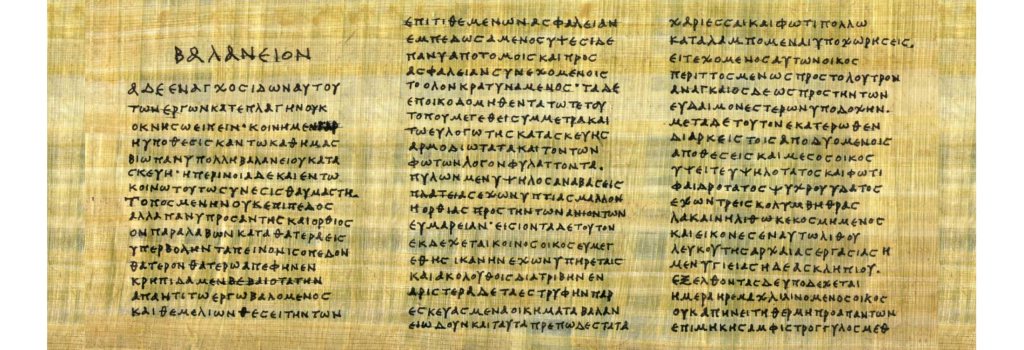 ΒΑΛΑΝΕΙΟΝ
ΑΔΕΕΝΑΓΧΟϹΙΔΩΝΑΥΤΟΥ
ΤΩΝΕΡΓΩΝΚΑΤΕΠΛΑΓΗΝΟΥΚ
ΟΚΝΗϹΩΕΙΠΕΙΝ·ΚΟΙΝΗΜΕΝ
ΗΥΠΟΘΕϹΙϹΚΑΝΤΩΚΑΘΗΜΑϹ
ΒΙΩΠΑΝΥΠΟΛΛΗΒΑΛΑΝΕΙΟΥΚΑΤΑ
ϹΚΕΥΗ·ΗΠΕΡΙΝΟΙΑΔΕΚΑΙΕΝΤΩ
ΚΟΙΝΩΤΟΥΤΩϹΥΝΕϹΙϹΘΑΥΜΑϹΤΗ.
ΤΟΠΟϹΜΕΝΗΝΟΥΚΕΠΙΠΕΔΟϹ
ΑΛΛΑΠΑΝΥΠΡΟϹΑΝΤΗϹΚΑΙΟΡΘΙΟϹ
ΟΝΠΑΡΑΛΑΒΩΝΚΑΤΑΘΑΤΕΡΑΕΙϹ
ΥΠΕΡΒΟΛΗΝΤΑΠΕΙΝΟΝΙϹΟΠΕΔΟΝ
ΘΑΤΕΡΟΝΘΑΤΕΡΩΑΠΕΦΗΝΕΝ
ΚΡΗΠΙΔΑΜΕΝΒΕΒΑΙΟΤΑΤΗΝ
ΑΠΑΝΤΙΤΩΕΡΓΩΒΑΛΟΜΕΝΟϹ
ΚΑΙΘΕΜΕΛΙΩΝΘΕϹΕΙΤΗΝΤΩΝ
ΕΠΙΤΙΘΕΜΕΝΩΝΑϹΦΑΛΕΙΑΝ
ΕΜΠΕΔΩϹΑΜΕΝΟϹΥΨΕϹΙΔΕ
ΠΑΝΥΑΠΟΤΟΜΟΙϹΚΑΙΠΡΟϹ
ΑϹΦΑΛΕΙΑΝϹΥΝΕΧΟΜΕΝΟΙϹ
ΤΟΟΛΟΝΚΡΑΤΥΝΑΜΕΝΟϹ·ΤΑΔΕ
ΕΠΟΙΚΟΔΟΜΗΘΕΝΤΑΤΩΤΕΤΟΥ
ΤΟΠΟΥΜΕΓΕΘΕΙϹΥΜΜΕΤΡΑΚΑΙ
ΤΩΕΥΛΟΓΩΤΗϹΚΑΤΑϹΚΕΥΗϹ
ΑΡΜΟΔΙΩΤΑΤΑΚΑΙΤΟΝΤΩΝ
ΦΩΤΩΝΛΟΓΟΝΦΥΛΑΤΤΟΝΤΑ.
ΠΥΛΩΝΜΕΝΥΨΗΛΟϹΑΝΑΒΑϹΕΙϹ
ΠΛΑΤΕΙΑϹΕΧΩΝΥΠΤΙΑϹΜΑΛΛΟΝ
ΗΟΡΘΙΑϹΠΡΟϹΤΗΝΤΩΝΑΝΙΟΝΤΩΝ
ΕΥΜΑΡΕΙΑΝ·ΕΙϹΙΟΝΤΑΔΕΤΟΥΤΟΝ
ΕΚΔΕΧΕΤΑΙΚΟΙΝΟϹΟΙΚΟϹΕΥΜΕΓ
ΕΘΗϹΙΚΑΝΗΝΕΧΩΝΥΠΗΡΕΤΑΙϹ
ΚΑΙΑΚΟΛΟΥΘΟΙϹΔΙΑΤΡΙΒΗΝΕΝ
ΑΡΙϹΤΕΡΑΔΕΤΑΕϹΤΡΥΦΗΝΠΑΡ
ΕϹΚΕΥΑϹΜΕΝΑΟΙΚΗΜΑΤΑΒΑΛΑΝ
ΕΙΩΔΟΥΝΚΑΙΤΑΥΤΑΠΡΕΠΩΔΕϹΤΑΤΑ
ΧΑΡΙΕϹϹΑΙΚΑΙΦΩΤΙΠΟΛΛΩ
ΚΑΤΑΛΑΜΠΟΜΕΝΑΙΥΠΟΧΩΡΗϹΕΙϹ.
ΕΙΤΕΧΟΜΕΝΟϹΑΥΤΩΝΟΙΚΟϹ
ΠΕΡΙΤΤΟϹΜΕΝΩϹΠΡΟϹΤΟΛΟΥΤΡΟΝ
ΑΝΑΓΚΑΙΟϹΔΕΩϹΠΡΟϹΤΗΝΤΩΝ
ΕΥΔΑΙΜΟΝΕϹΤΕΡΩΝΥΠΟΔΟΧΗΝ.
ΜΕΤΑΔΕΤΟΥΤΟΝΕΚΑΤΕΡΩΘΕΝ
ΔΙΑΡΚΕΙϹΤΟΙϹΑΠΟΔΥΟΜΕΝΟΙϹ
ΑΠΟΘΕϹΕΙϹΚΑΙΜΕϹΟϹΟΙΚΟϹ
ΥΨΕΙΤΕΥΨΗΛΟΤΑΤΟϹΚΑΙΦΩΤΙ
ΦΑΙΔΡΟΤΑΤΟϹΨΥΧΡΟΥΥΔΑΤΟϹ
ΕΧΩΝΤΡΕΙϹΚΟΛΥΜΒΗΘΡΑϹ
ΛΑΚΑΙΝΗΛΙΘΩΚΕΚΟϹΜΗΜΕΝΟϹ
ΚΑΙΕΙΚΟΝΕϹΕΝΑΥΤΩΛΙΘΟΥ
ΛΕΥΚΟΥΤΗϹΑΡΧΑΙΑϹΕΡΓΑϹΙΑϹΗ
ΜΕΝΥΓΙΕΙΑϹΗΔΕΑϹΚΛΗΠΙΟΥ.
ΕΞΕΛΘΟΝΤΑϹΔΕΥΠΟΔΕΧΕΤΑΙ
ΗΜΕΡΑΗΡΕΜΑΧΛΙΑΙΝΟΜΕΝΟϹΟΙΚΟϹ
ΟΥΚΑΠΗΝΕΙΤΗΘΕΡΜΗΠΡΟΑΠΑΝΤΩΝ
ΕΠΙΜΗΚΗϹΑΜΦΙϹΤΡΟΓΓΥΛΟϹΜΕΘ